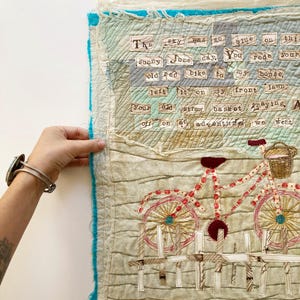 The sky was so blue on this
sunny June day. You rode your
old red bike to my house,
left it on my front lawn,
Your old straw basket swaying,
off on an adventure we went